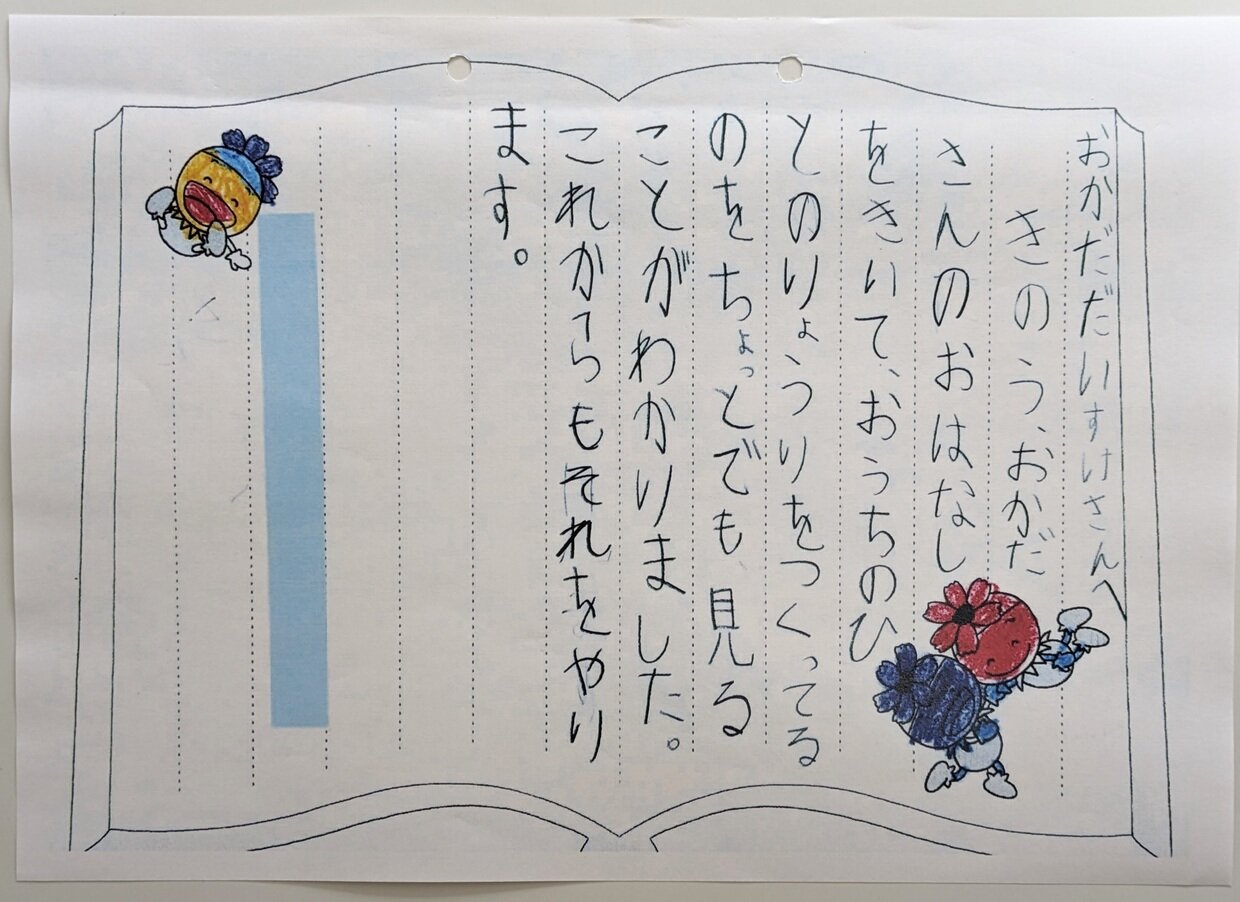 おかだだいすけさんへ
きのう、おかだ
さんのおはなし
をきいて、おうちのひ
とのりょうりをつくってる
のをちょっとでも、見る
ことがわかりました。
これからもそれをやり
ます。